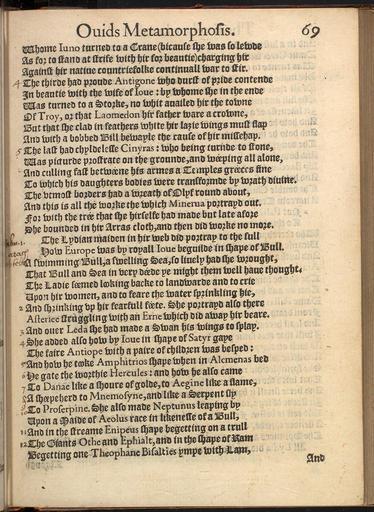 Ouids Metamorphosis. 69
Whome Iuno turned to a Crane (bicause she was so lewde
As for to stand at strife with hir for beautie) charging hir
Against hir natiue countriefolke continuall war to stir.
4 The thirde had proude Antigone who durst of pride contende
In beautie with the wife of Ioue: by whome she in the ende
Was turned to a Storke, no whit auailed hir the towne
Of Troy, or that Laomedon hir father ware a crowne,
But that she clad in feathers white hir lazie wings must flap
And with a bobbed Bill bewayle the cause of hir misschap.
5 The last had chyldelesse Cinyras: who being turnde to stone,
Was picturde prostrate on the grounde, and wéeping all alone,
And culling fast betwéene his armes a Temples gréeces fine
To which his daughters bodies were transformde by wrath diuine.
The vtmost borders had a wreath of Olyf round about,
And this is all the worke the which Minerua portrayd out.
For with the trée that she hirselfe had made but late afore
She bounded in hir Arras cloth, and then did worke no more.
1. The Lydian maiden in hir web did portray to the full
How Europe was by royall Ioue beguilde in shape of Bull.
A swimming Bull, a swelling Sea, so liuely had she wrought,
That Bull and Sea in very déede ye might them well haue thought.
The Ladie séemed looking backe to landwarde and to crie
Upon hir women, and to feare the water sprinkling hie,
2 And shrinking vp hir fearfull féete. She portrayd also there
Asteriee struggling with an Erne which did away hir beare.
3 And ouer Leda she had made a Swan his wings to splay.
4 She added also how by Ioue in shape of Satyr gaye
The faire Antiope with a paire of children was besped:
5 And how he tooke Amphitrios shape when in Alcmenas bed
6 He gate the worthie Hercules: and how he also came
7 To Danae like a shoure of golde, to Aegine like a flame,
8 A shéepeherd to Mnemosyne, and like a Serpent sly
To Proserpine. She also made Neptunus leaping by
Upon a Maide of Aeolus race in likenesse of a Bull,
11 And in the streame Enipeus shape begetting on a trull
12 The Giants Othe and Ephialt, and in the shape of Ram
Begetting one Theophane Bisalties ympe with Lam,
And